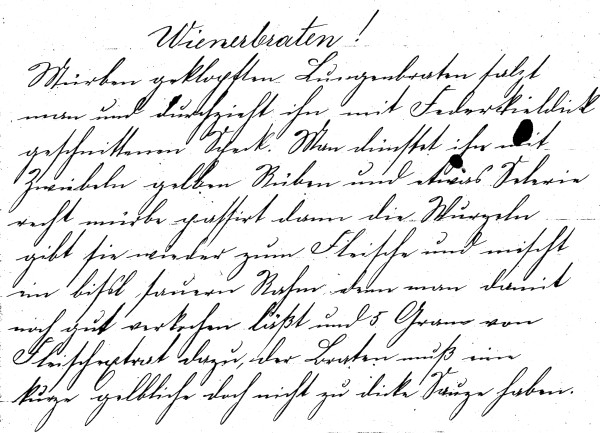 Wienerbraten!
Mürben geklopften Lungenbraten salzt
man und durchzieht ihn mit Federkieldick
geschnittenen Speck. Man dünstet ihn mit
Zwiebeln gelben Rüben und etwas Selerie
recht mürbe passirt dann die Wurzeln
gibt sie wieder zum Fleische und mischt
ein bissl sauern Rahm dem man damit
noch gut verkochen läßt und 5 Gram von
Fleischextrat dazu, der Braten muß eine
kurze gelbliche doch nicht zu dicke Sauze haben.